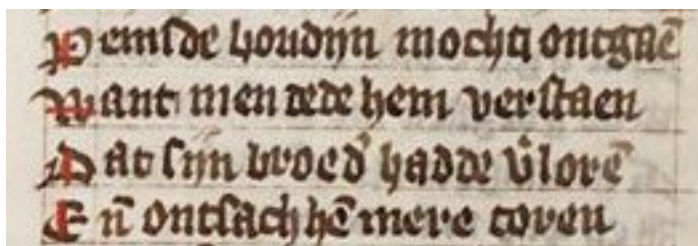 Peinsde boudijn mochti ontgaē
Want men dede hem verstaen
Dat sijn broed' hadde v'lorē
En̄ ontsach hē mere toren